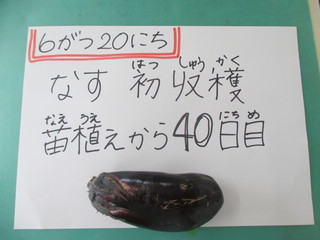 6がつ20にち
なす 初収穫
はつ しゅうかく
苗植えから40日目
なえ うえ にちめ